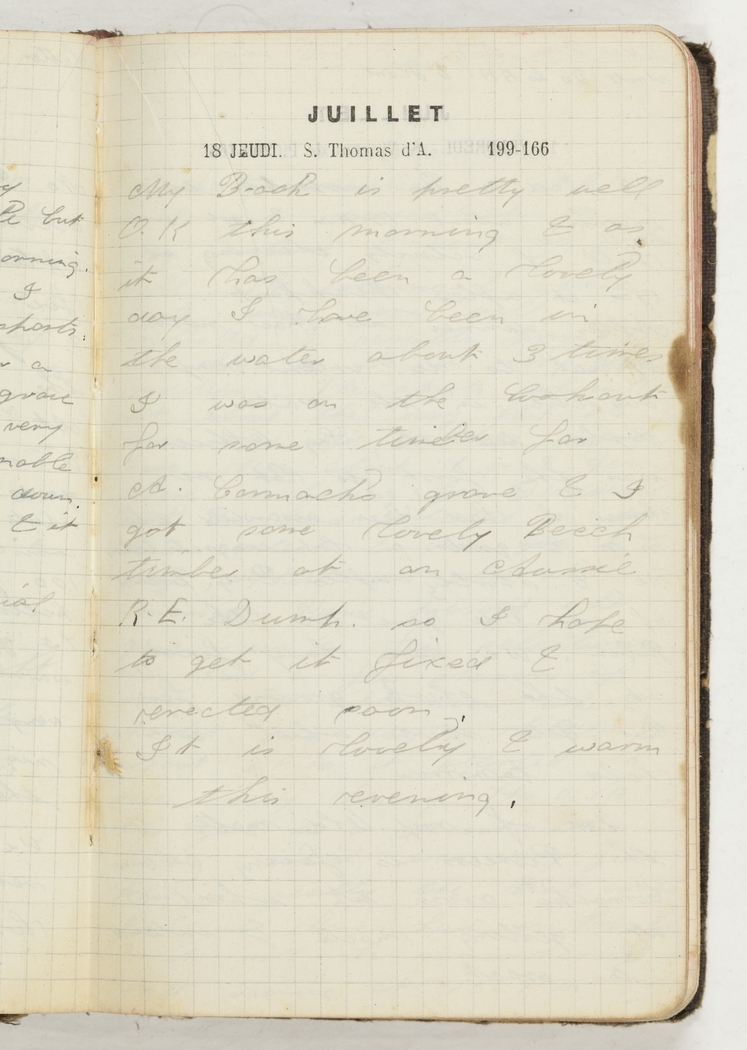 JUILLET
18 JEUDI. S. Thomas d'A. 199-166
My Back is pretty well
O.K this morning & as
it has been a lovely
day I have been in
the water about 3 times
I was on the lookout
for some timber for
A. Cormacks grave & I
got some lovely Beech
timber at an Aussie
R.E. Dump. so I hope
to get it fixed &
erected soon.
It is lovely & warm
this evening.
but
orning.
I
sports.
a
grave
very
down.
& it